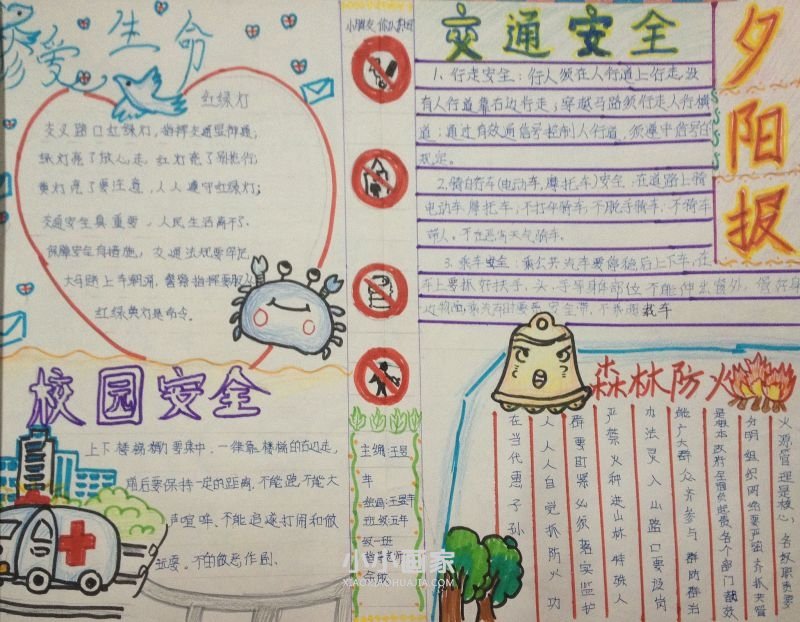 珍爱生命
红绿灯
交叉路口红绿灯，指挥交通显神通；
绿灯亮了放心走，红灯亮了别抢行；
黄灯亮了要注意，人人遵守红绿灯；
交通安全真重要，人民生活离不了。
保障安全有措施，交通法规要牢记
大马路上车潮涌，警察指挥要服从
红绿黄灯是命令。
校园安全
上下楼梯
要集中，一律靠楼梯的右边走，
前后要保持一定的距离，不能跑，不能大
声喧哗，不能追逐打闹和做
玩耍。不的做恶作剧。
小朋友你认识吗
主编：王曼
班级五年
级一班
指导老师
交通安全
1、行走安全：行人须在人行道上行走，没
有人行道靠右边行走；穿越马路须行走人行横
道；通过有效通信号控制人行道，须遵守信号的
规定。
2、骑自行车（电动车，摩托车）安全：在道路上骑
电动车、摩托车，不打伞骑车，不脱手骑车，不骑车
带人。不在恶劣天气骑车。
3、乘车安全：乘公共汽车要停稳后上下车，在
车上要抓好扶手，头、手等身体部位不能伸出窗外，
载车
夕阳报
森林防火
火源管理是核心，各级职责要
分明，组织网络要严强，齐抓共管
能广大群众齐参与，群防群当
办法，灵入山路口要设岗
严禁火种进山林，特殊人
群要盯紧，必须落实监护
人，人人自觉抓防火，功
在当代惠子孙
小小画家
XIAOXIAOHUAJIA.COM